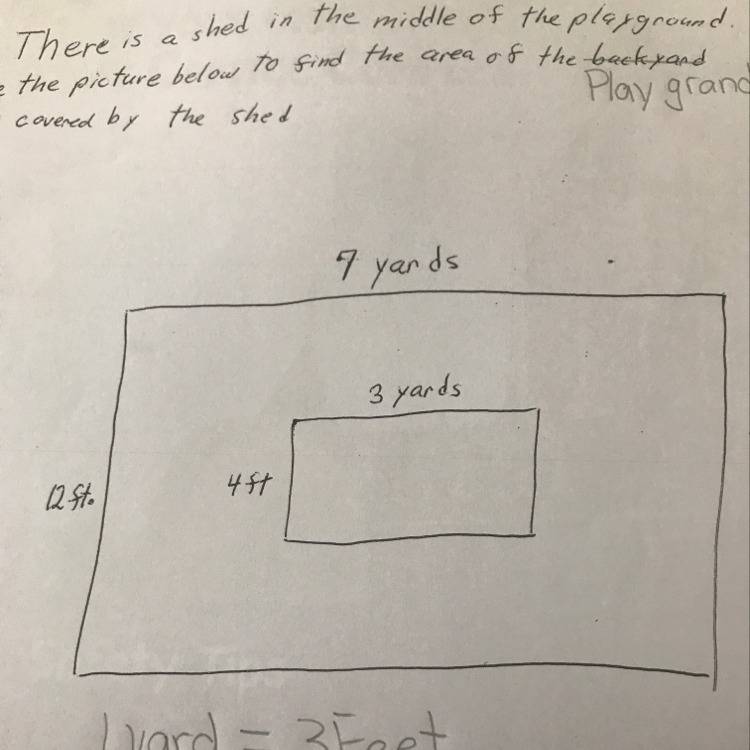 There is a shed in the middle of the playground.
e the picture below to find the area of the backyard
Play grand
covered by the shed
7 yards
3 yards
12 ft.
4 ft
1 yard = 3 Feet